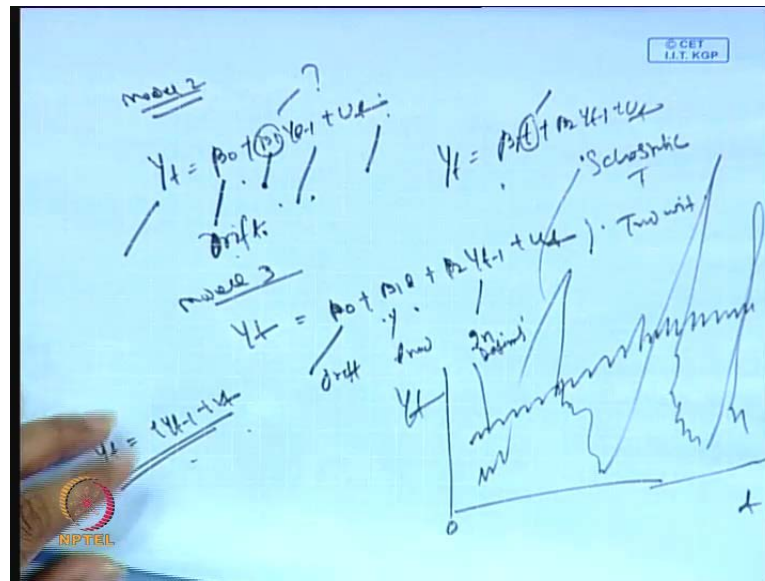 © CET
I.I.T. KGP
Model 2
?
Yt = β0 + β1 Yt-1 + Ut
drift
Yt = β1t + β2 Yt-1 + Ut
T
Model 3
Yt = β0 + β1t + β2 Yt-1 + Ut
drift
Yt
Yt = 1Yt-1 + Ut
0
t
NPTEL